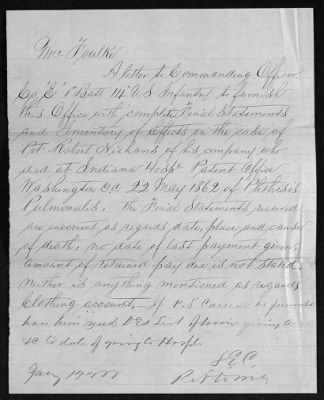 Mr. Faulke
A letter to Commanding Officer
Co. "B" 1" Batt 14" U S Infantry to furnish
this Office with complete Final Statements
and Inventory of Effects in the case of
Pvt. Robert Nichans of his company who
died at Indiana Hosp. Patent Office
Washington D.C. 22 May 1862 of Phthisis
Pulmonalis. The Final Statements received
are incorrect as regards date, place and cause
of death, no date of last payment given,
amount of retained pay due is not stated.
Neither is anything mentioned as regards
Clothing account. If
him send
to date of going to Hosp.